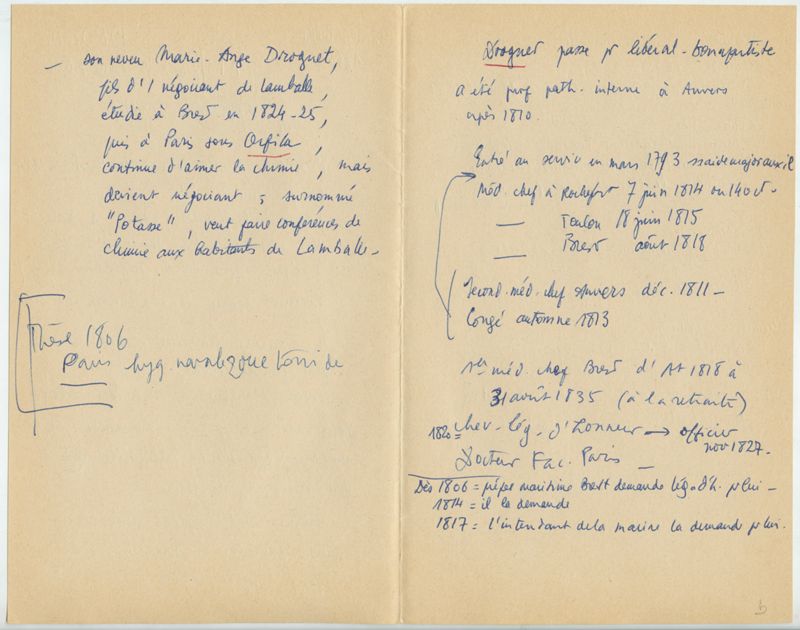 — son neveu Marie-Ange Droguet,
fils d'1 négociant de Lamballe,
étudie à Brest en 1824-25,
puis à Paris sous Orfila,
continue d'aimer la chimie, mais
devient négociant ; surnommé
"Potasse", veut faire conférences de
chimie aux habitants de Lamballe -
Thèse 1806
Paris hyg. navale zone torride
Droguet passe pr libéral-bonapartiste
a été prof path. interne à Anvers
après 1810.
Entré au servic en mars 1793 aide major auxil
Méd. chef à Rochefort 7 juin 1814 ou 14 oct -
— Toulon 18 juin 1815
— Brest août 1818
Second. méd. chef Anvers déc. 1811 -
Congé automne 1813
1er méd. chef Brest d' At 1818 à
31 août 1835 (à la retraite)
1820 = chev. lég. d'honneur → officier
nov 1827.
Docteur Fac. Paris —
Dès 1806 = préfet maritime Brest demande lég. d'h. pr lui -
1814 = il la demande
1817 = l'intendant de la marine la demande pr lui.